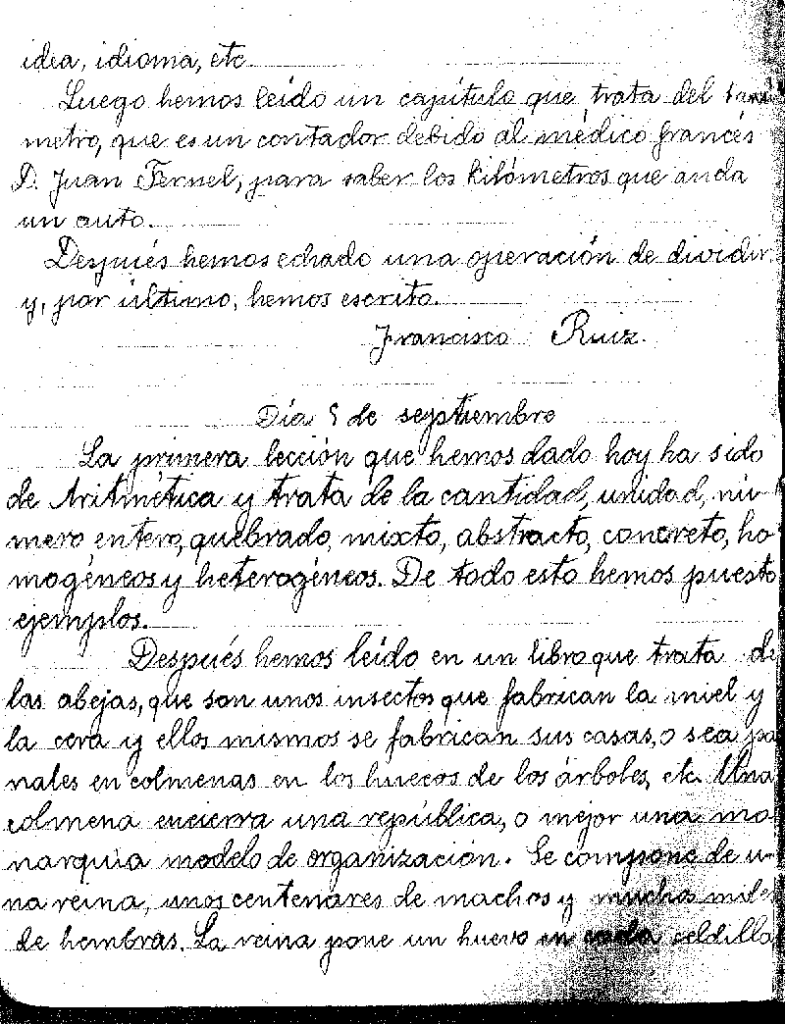 idea, idioma, etc
Luego hemos leído un capítulo que trata del
metro, que es un contador debido al médico francés
D. Juan Fernel, para saber los kilómetros que anda
un auto.
Después hemos echado una operación de dividir
y, por último, hemos escrito.
Francisco Ruiz.
Día 5 de septiembre
La primera lección que hemos dado hoy ha sido
de Aritmética y trata de la cantidad, unidad, nú-
mero entero, quebrado, mixto, abstracto, concreto, ho
mogéneos y heterogéneos. De todo esto hemos puesto
ejemplos.
Después hemos leído en un libro que trata de
las abejas, que son unos insectos que fabrican la miel y
la cera y ellos mismos se fabrican sus casas, o sea pa
nales en colmenas en los huecos de los árboles, etc. Una
colmena encierra una república, o mejor una mo
narquía modelo de organización. Se compone de u-
na reina, unos centenares de machos y muchos miles
de hembras. La reina pone un huevo en cada celdilla,